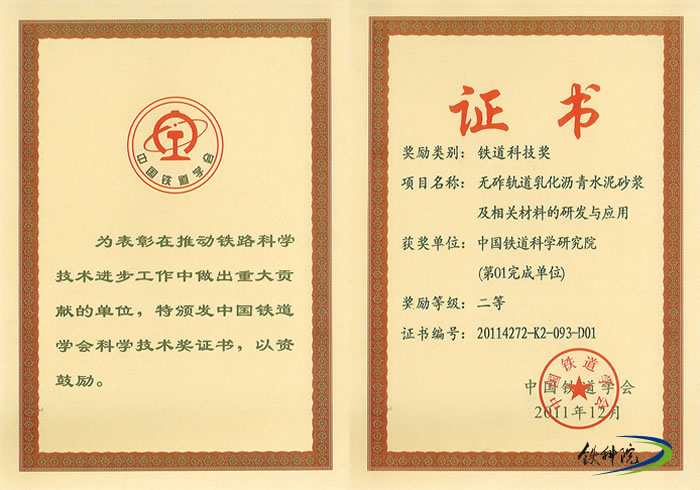 中国铁道学会
为表彰在推动铁路科学
技术进步工作中做出重大贡
献的单位，特颁发中国铁道
学会科学技术奖证书，以资
鼓励。
证书
奖励类别：铁道科技奖
项目名称：无砟轨道乳化沥青水泥砂浆
及相关材料的研发与应用
获奖单位：中国铁道科学研究院
(第01完成单位)
奖励等级：二等
证书编号：20114272-K2-093-D01
中国铁道学会
中国铁道学会
2011年12月
铁科院